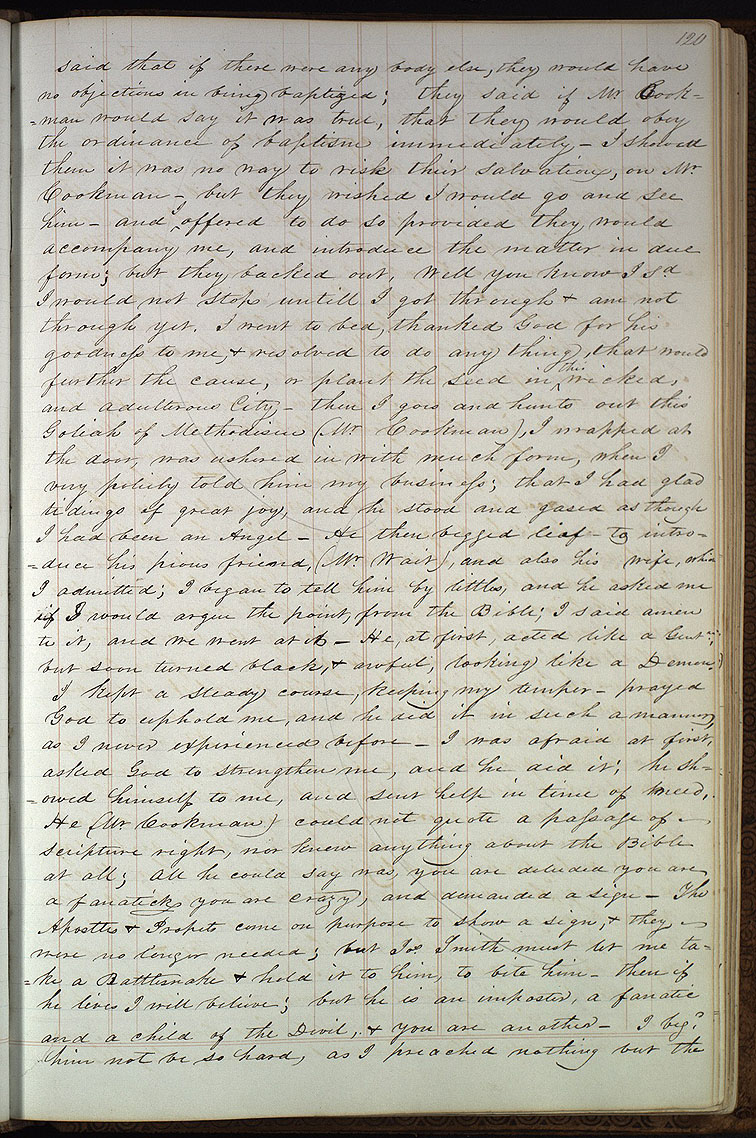 120
said that if there were any body else, they would have
no objections in being baptized; they said if Mr Cook=
=man would say it was true, that they would obey
the ordinance of baptism immediately - I showed
them it was no way to risk their salvation, on Mr
Cookman - but they wished I would go and see
him - and I offered to do so provided they would
accompany me, and introduce the matter in due
form; but they backed out, Well you know I sd
I would not stop untill I got through & am not
through yet. I went to bed, thanked God for his
goodness to me, & resolved to do any thing, that would
further the cause, or plant the seed in this wicked,
and adulterous City - then I goes and hunts out this
Goliah of Methodism (Mr Cookman), I wrapped at
the door, was ushered in with much form, when I
very politely told him my business; that I had glad
tidings of great joy, and he stood and gased as though
I had been an Angel - He then begged lief to intro=
=duce his pious friend, (Mr Wait), and also his wife, which
I admitted; I began to tell him by littles, and he asked me
if I would argue the point, from the Bible; I said amen
to it, and we went at it - He, at first, acted like a Gentn;
but soon turned black, & awful, looking like a Demon)
I kept a steady course, keeping my temper - prayed
God to uphold me, and he did it in such a manner,
as I never experienced before - I was afraid at first,
asked God to strengthen me, and he did it; he sh=
=owed himself to me, and sent help in time of need,
He (Mr Cookman) could not quote a passage of
scripture right, nor knew anything about the Bible
at all; All he could say was, you are deluded you are
a fanatick you are crazy, and demanded a sign - The
Apostles & Prophets come on purpose to show a sign, & they
were no longer needed; but Js. Smith must let me ta=
=ke, a Rattlesnake & hold it to him, to bite him - then if
he lives I will believe; but he is an imposter, a fanatic
and a child of the Divil, & you are another - I beg'd
him not be so hard, as I preached nothing but the